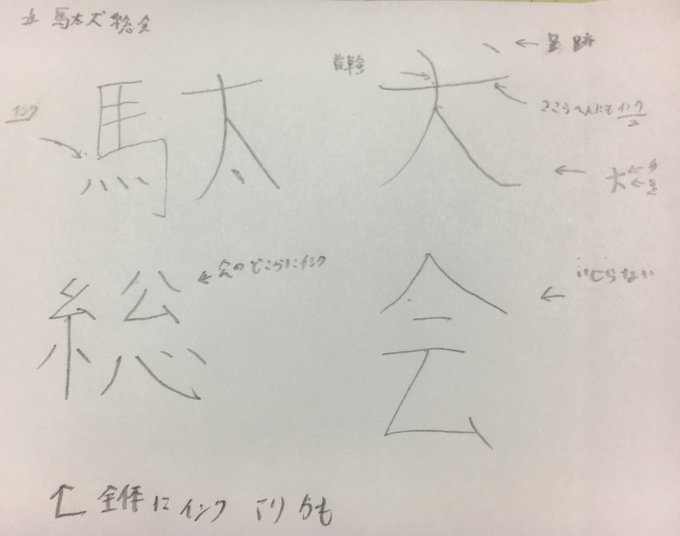 馬太犬総会
足跡
インク
馬太犬
ここらへんにもインク
大
手
足
総会
公のどこかにインク
いじらない
↑全体にインク